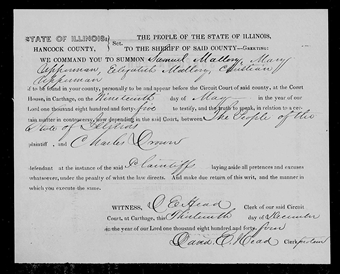 STATE OF ILLINOIS, THE PEOPLE OF THE STATE OF ILLINOIS,
HANCOCK COUNTY, Sct. TO THE SHERIFF OF SAID COUNTY—GREETING:
WE COMMAND YOU TO SUMMON Samuel Mallory, Mary
Epperman, Elizabeth Mallory, Christian
Epperman
if to be found in your county, personally to be and appear before the Circuit Court of said county, at the Court
House, in Carthage, on the Nineteenth day of May in the year of our
Lord one thousand eight hundred and forty-five to testify, and the truth to speak, in relation to a cer-
tain matter in controversy, now depending in the said Court, between The People of the
State of Illinois
plaintiff and Charles
defendant at the instance of the said Plaintiff laying aside all pretences and excuses
whatsoever, under the penalty of what the law directs. And make due return of this writ, and the manner in
which you execute the same.
WITNESS, Head Clerk of our said Circuit
Court, at Carthage, this day of December
in the year of our Lord one thousand eight hundred and forty-four
David E. Head Clerk